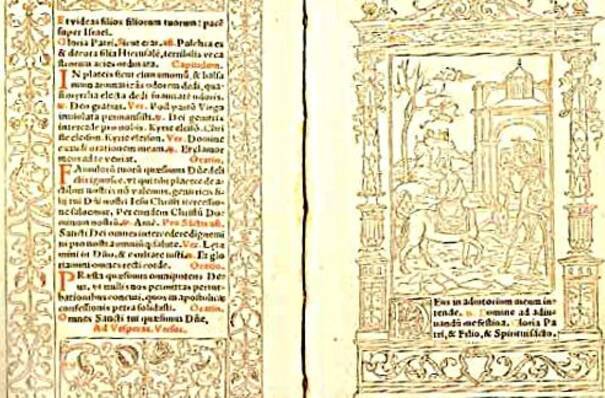 Et videas filios filiorum tuorum: pacē
super Israel.
Gloria Patri, Sicut erat. añ. Pulchra es
& decora filia Hierusalē, terribilis ut ca
strorum acies ordinata. Capitulum.
IN plateis sicut cinnamomū, & balsa
mum aromatizās odorem dedi, qua-
si myrrha electa dedi suauitatē odoris.
Deo gratias. Ver. Post partū Virgo
inuiolata permansisti. Dei genitrix
intercede pro nobis. Kyrie eleisō. Chri
ste eleison. Kyrie eleison. Ver. Domine
exaudi orationem meam. Et clamor
meus ad te veniat. Oratio.
FAmulorū tuorū quæsumus Dñe deli
ctis ignosce, vt qui tibi placere de a-
ctibus nostris nō valemus, genitricis fi-
lij tui Dñi nostri Iesu Christi intercessio-
ne saluemur, Per eundem Christū Do-
minum nostrū. Amē. Pro Sāctis añ.
Sancti Dei omnes intercedere dignemi
ni pro nostra omniūq; salute. Ver. Læta
mini in Dño, & exultate iusti. Et glo
riamini omnes recti corde. Oratio.
PRæsta quæsumus omnipotens De-
us, vt nullis nos permittas pertur-
bationibus concuti, quos in apostolicæ
confessionis petra solidasti. Oratio.
Omnes Sancti tui quæsumus Dñe,
Ad Vesperas. Versus.
DEus in adiutorium meum in-
tende. Domine ad adiu-
uandū me festina. Gloria Pa
tri, & Filio, & Spiritui sācto.